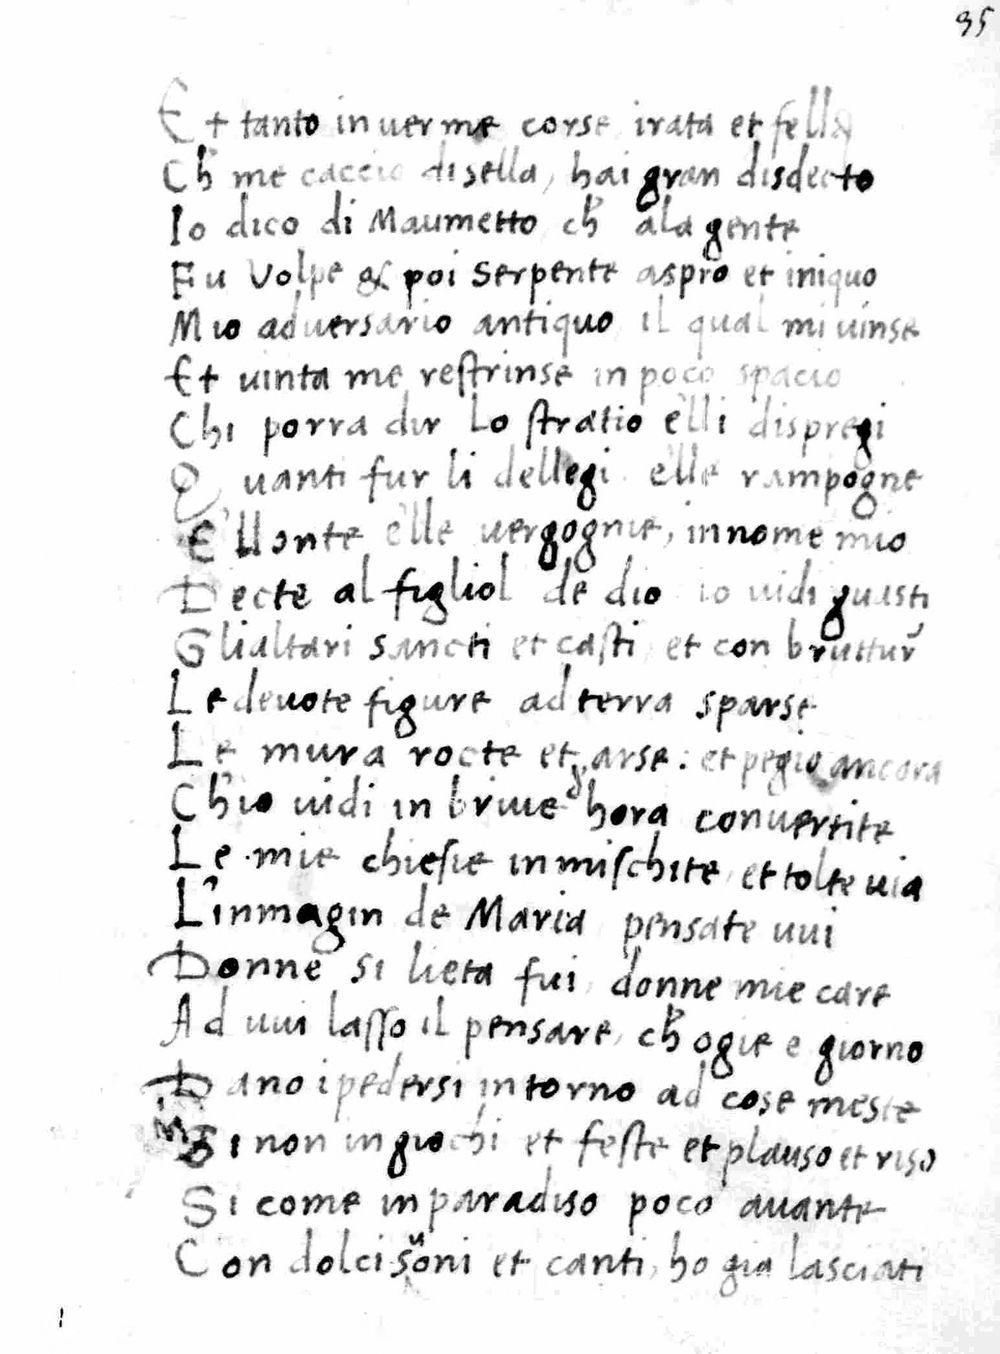 95
Et tanto inuer me corse irata et fella
Ch me caccio di sella, hai gran disdecto
Io dico di Maumetto ch ala gente
Fu Volpe & poi Serpente aspro et iniquo
Mio aduersario antiquo il qual mi uinse
Et uinta me restrinse in poco spacio
Chi porra dir Lo stratio e'lli dispregi
Quanti fur li dellegi e'lle rampogne
E'llonte e'lle uergognie, in nome mio
Decte al figliol de dio io uidi guasti
Glialtari sancti et casti et con bruttur
Le deuote figure ad terra sparse
Le mura rocte et arse: et pegio ancora
Ch'io uidi in briue d'hora conuertite
Le mie chiesie in mischite et tolte uia
L'inmagin de Maria pensate uui
Donne si lieta fui, donne mie care
Ad uui lasso il pensare, ch ogie e giorno
Da no ipedersi intorno ad cose meste
Si non in giochi et feste et plauso et riso
Si come in paradiso poco auante
Con dolci suoni et canti, ho gia lasciati